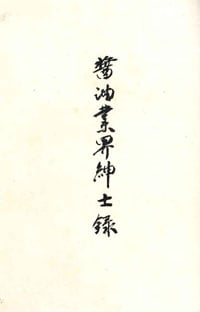 醤油業界紳士録